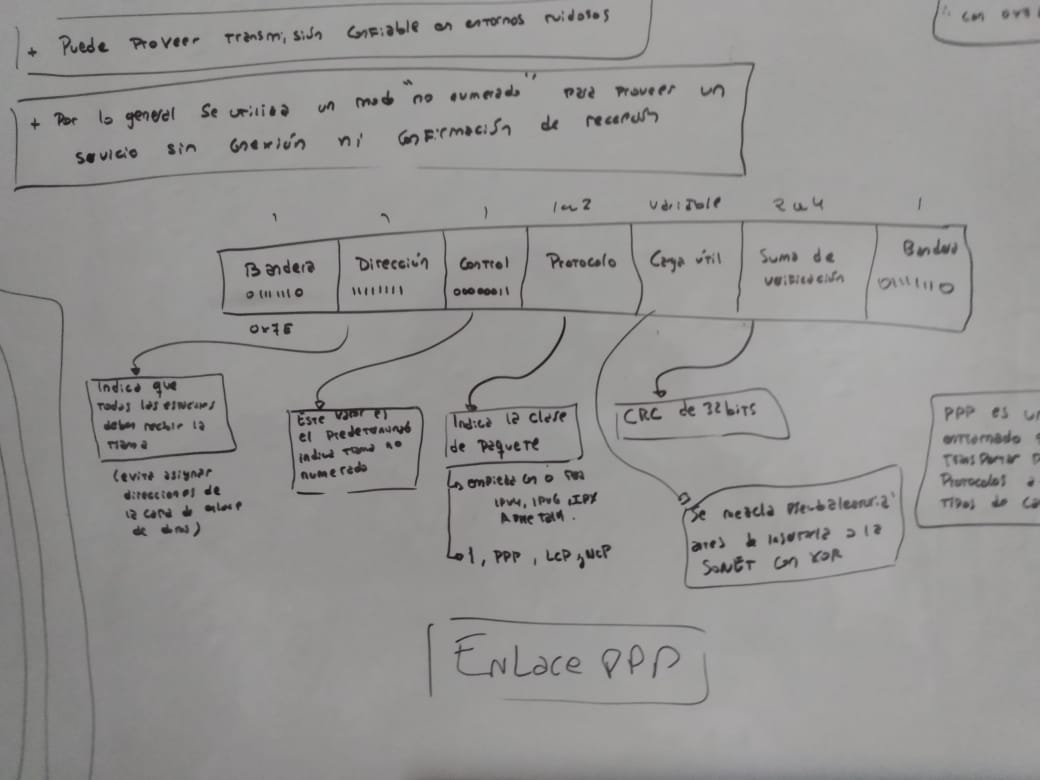 + Puede Proveer transmisión confiable en entornos ruidosos
∴ con
+ Por lo general se utiliza un modo "no numerado" para proveer un
servicio sin conexión ni confirmación de recepción
1 1 1 1 a 2 Variable 2 a 4 1
Bandera Dirección Control Protocolo Carga útil Suma de verificación Bandera
01111110 11111111 00000011 01111110
0x7E
Indica que
todas las estaciones
deben recibir la
trama
(evita asignar
direcciones de
la capa de enlace
de datos)
Este valor es
el predeterminado
indica trama no
numerada
Indica la clase
de paquete
↳ empieza con 0 para
IPv4, IPv6, IPX
AppleTalk.
↳ 1, PPP, LCP y NCP
CRC de 32 bits
Se mezcla pseudoaleatoria
antes de insertarla a la
SONET con XOR
PPP es un
entramado
Transportar
Protocolos a
Tipos de
ENLace PPP